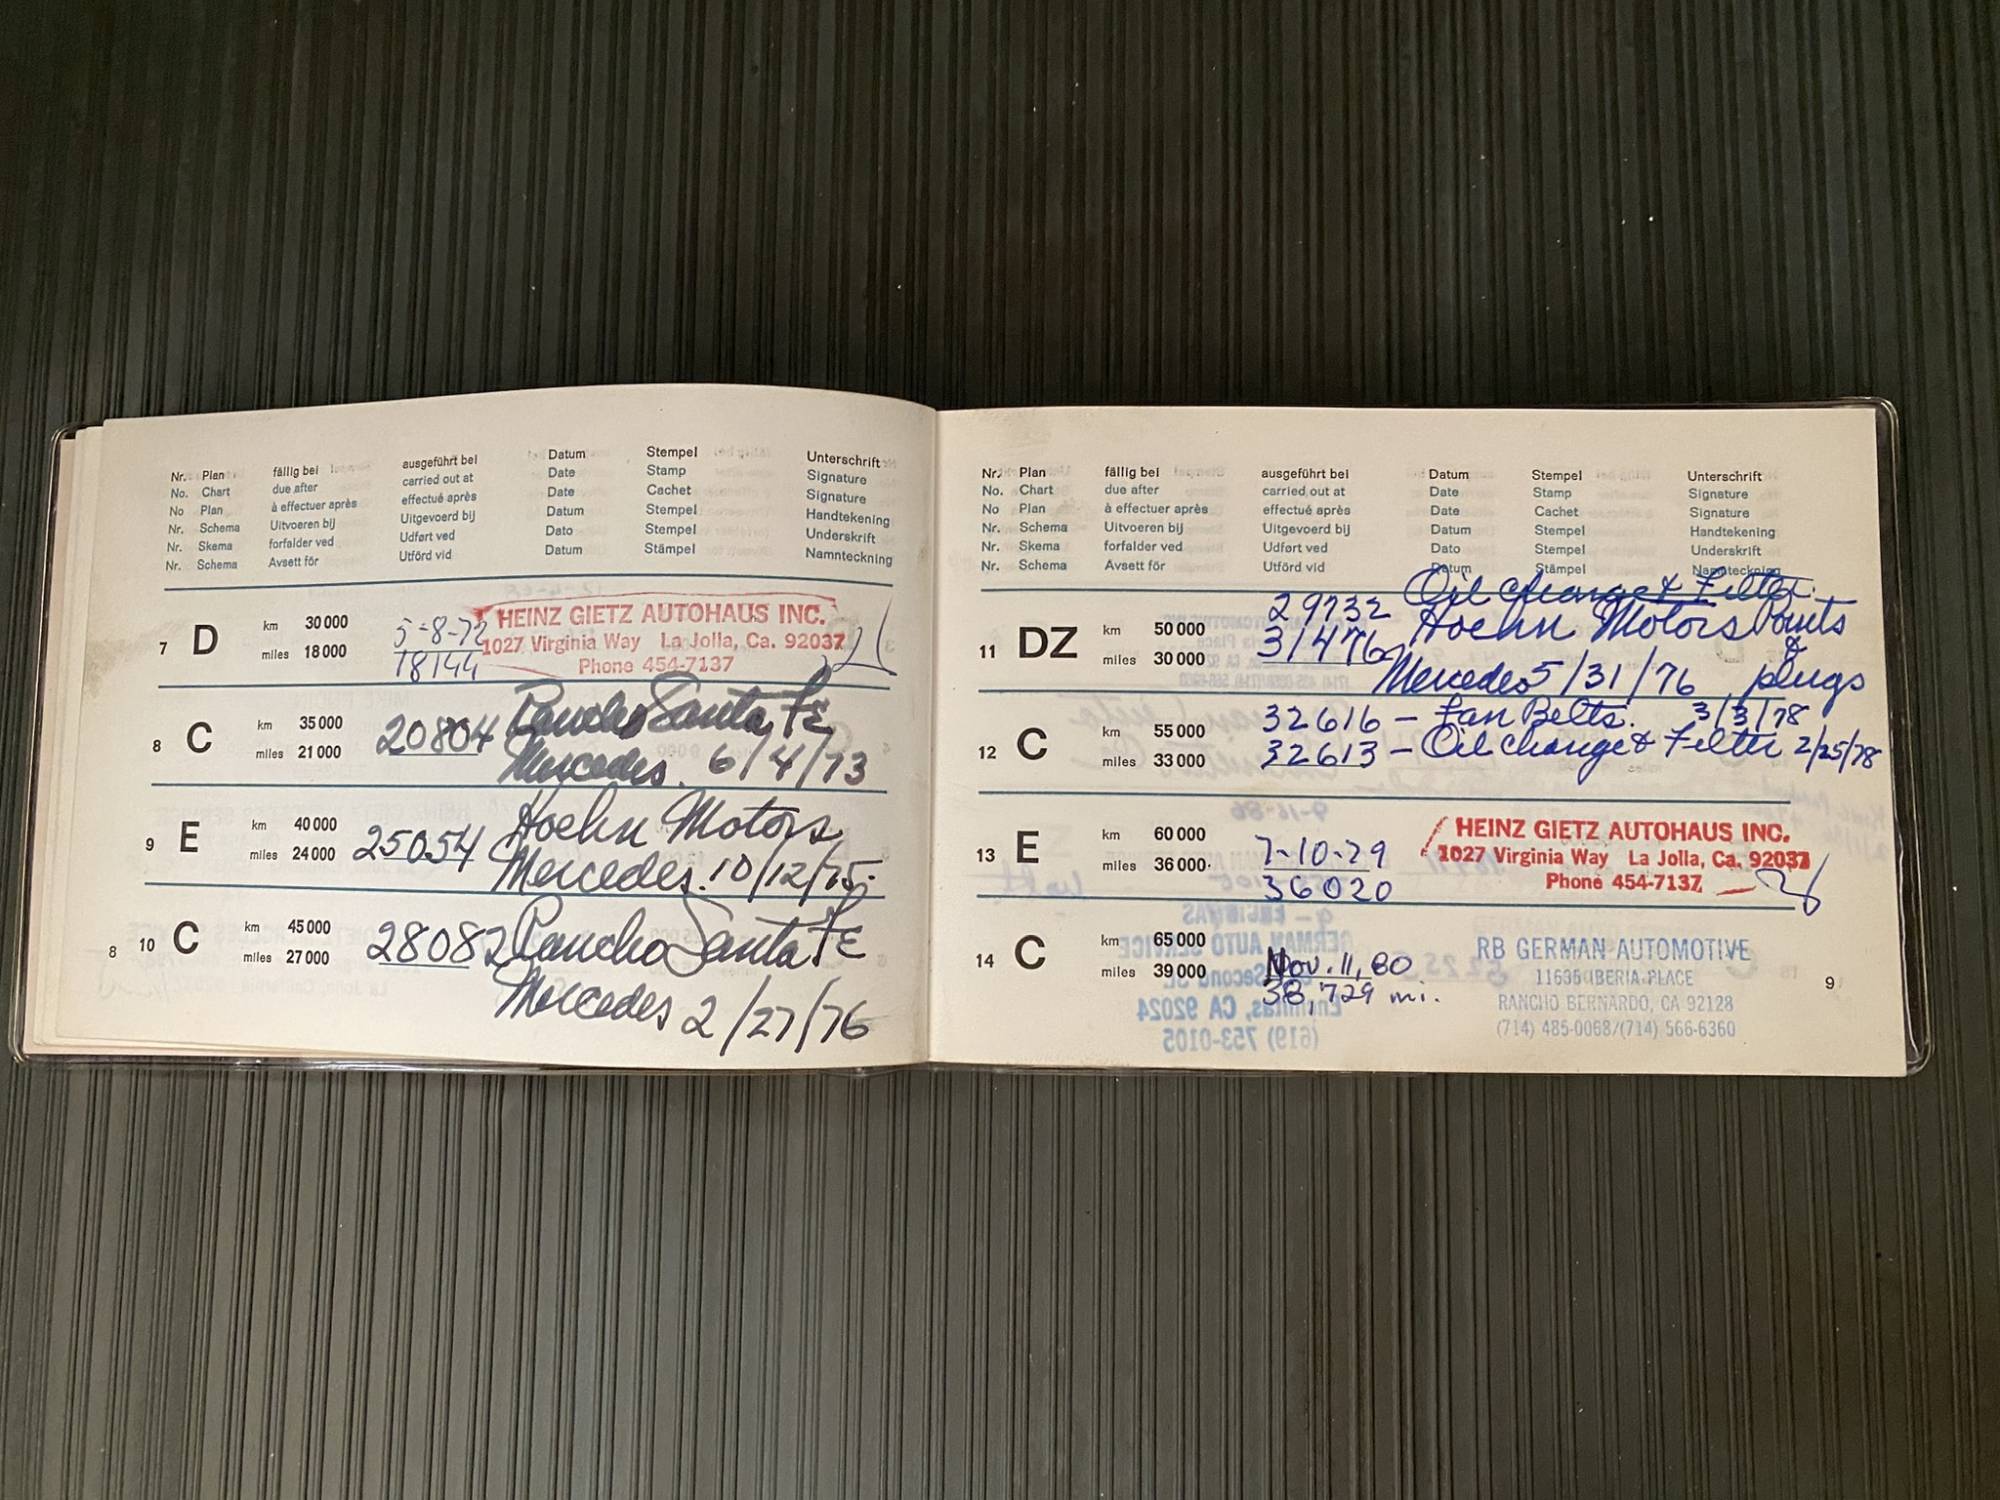 Nr. Plan fällig bei ausgeführt bei Datum Stempel Unterschrift
No. Chart due after carried out at Date Stamp Signature
No Plan à effectuer après effectué après Date Cachet Signature
Nr. Schema Uitvoeren bij Uitgevoerd bij Datum Stempel Handtekening
Nr. Skema forfalder ved Udført ved Dato Stempel Underskrift
Nr. Schema Avsett för Utförd vid Datum Stämpel Namnteckning
7 D km 30 000 miles 18 000
5-8-72
18144
HEINZ GIETZ AUTOHAUS INC.
1027 Virginia Way La Jolla, Ca. 92037
Phone 454-7137
8 C km 35 000 miles 21 000
20804 Rancho Santa Fe
Mercedes. 6/4/73
9 E km 40 000 miles 24 000
25054 Hoehn Motors
Mercedes. 10/12/75.
10 C km 45 000 miles 27 000
28082 Rancho Santa Fe
Mercedes 2/27/76
8
Nr. Plan fällig bei ausgeführt bei Datum Stempel Unterschrift
No. Chart due after carried out at Date Stamp Signature
No Plan à effectuer après effectué après Date Cachet Signature
Nr. Schema Uitvoeren bij Uitgevoerd bij Datum Stempel Handtekening
Nr. Skema forfalder ved Udført ved Dato Stempel Underskrift
Nr. Schema Avsett för Utförd vid Datum Stämpel Namnteckning
11 DZ km 50 000 miles 30 000
29732 Oil change & Filter.
31476 Hoehn Motors Points
Mercedes 5/31/76, & plugs
12 C km 55 000 miles 33 000
32616 - Fan Belts. 3/3/78
32613 - Oil change & Filter 2/25/78
13 E km 60 000 miles 36 000
7-10-79
36020
HEINZ GIETZ AUTOHAUS INC.
1027 Virginia Way La Jolla, Ca. 92037
Phone 454-7137
14 C km 65 000 miles 39 000
Nov. 11, 80
38,729 mi.
RB GERMAN AUTOMOTIVE
IBERIA PLACE
RANCHO BERNARDO, CA 92128
(714) 485-0068/(714) 566-6360
9